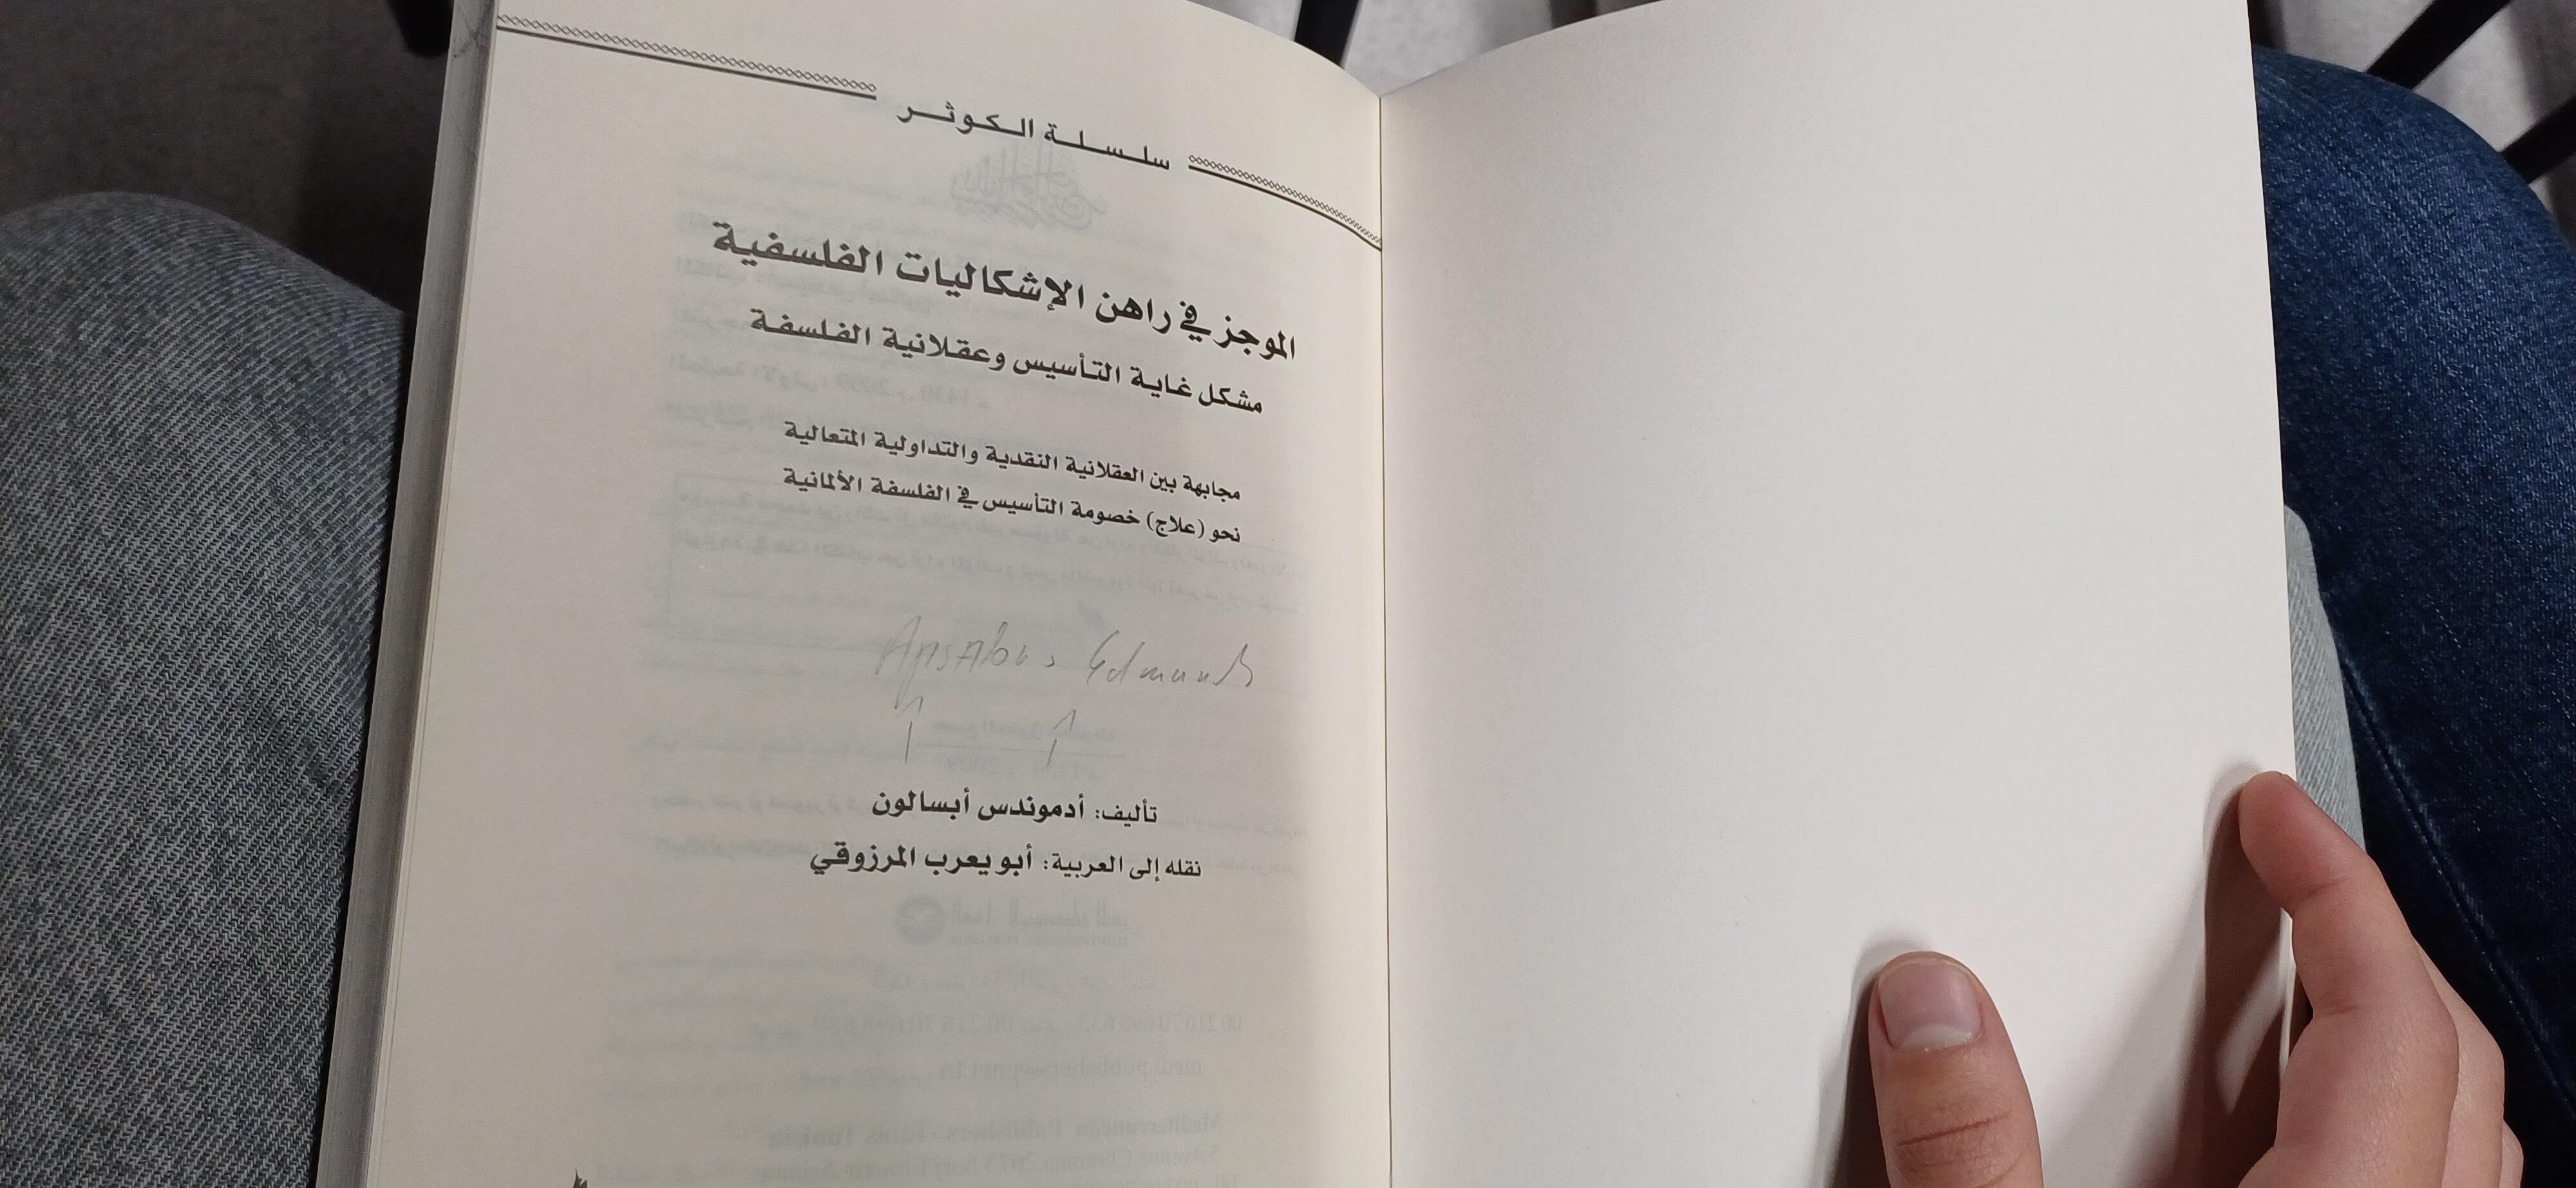 سلسلة الكوثر
الموجز في راهن الإشكاليات الفلسفية
مشكل غاية التأسيس وعقلانية الفلسفة
مجابهة بين العقلانية النقدية والتداولية المتعالية
نحو (علاج) خصومة التأسيس في الفلسفة الألمانية
تأليف: أدموندس أبسالون
نقله إلى العربية: أبو يعرب المرزوقي